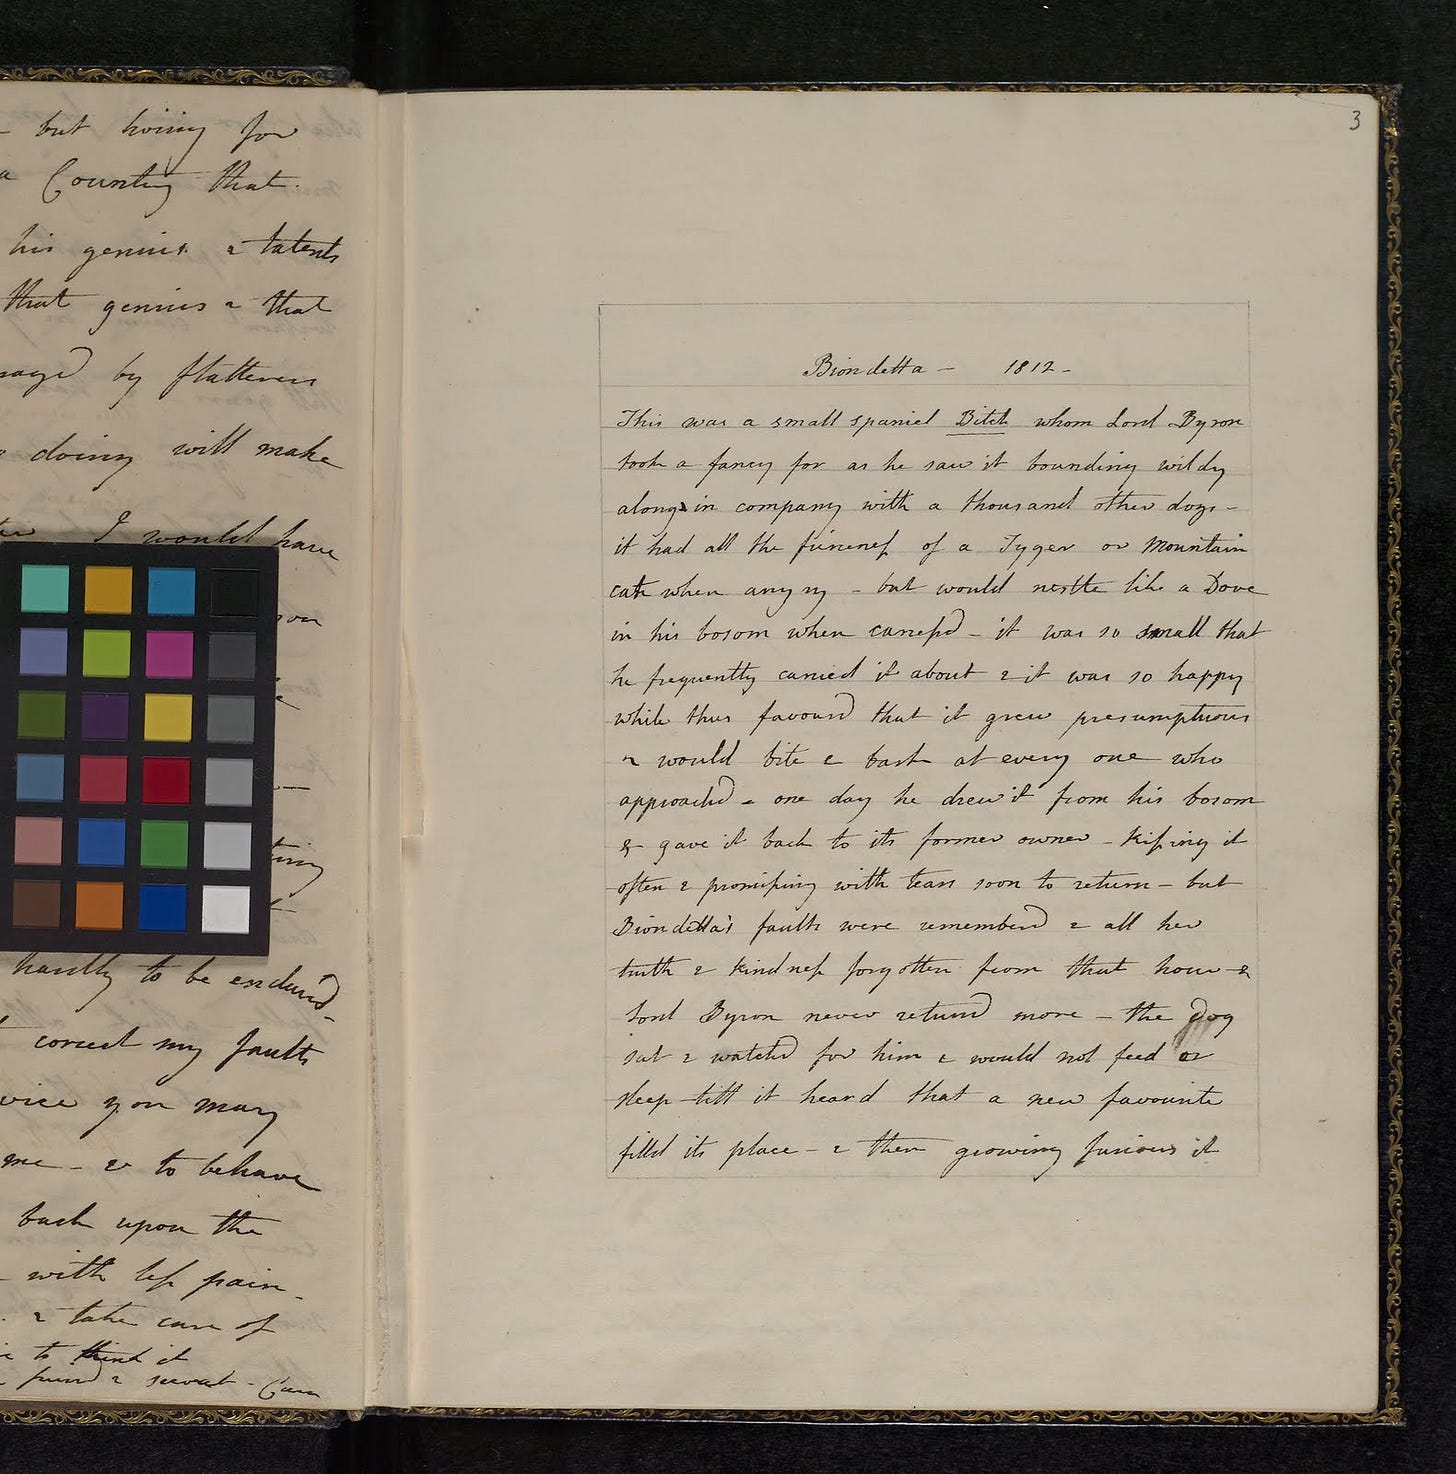 but living for
Country that.
his genius & talents
that genius & that
by flatterers
doing will make
I would have
hardly to be endur'd
correct my faults
you may
me - & to behave
back upon the
with less pain -
& take care of
to think it
& servant - Caro
3
Biondetta - 1812 -
This was a small spaniel Bitch whom Lord Byron
took a fancy for as he saw it bounding wildy
along in company with a thousand other dogs -
it had all the fierceness of a Tyger or Mountain
cat when angry - but would nestle like a Dove
in his bosom when caress'd - it was so small that
he frequently carried it about & it was so happy
while thus favour'd that it grew presumptuous
& would bite & bark at every one who
approach'd - one day he drew it from his bosom
& gave it back to its former owner - Kissing it
often & promissing with tears soon to return - but
Biondetta's faults were rememberd & all her
truth & kindness forgotten from that hour - &
Lord Byron never returnd more - the Dog
sat & watchd for him & would not feed or
sleep till it heard that a new favourite
filld its place - & then growing furious it